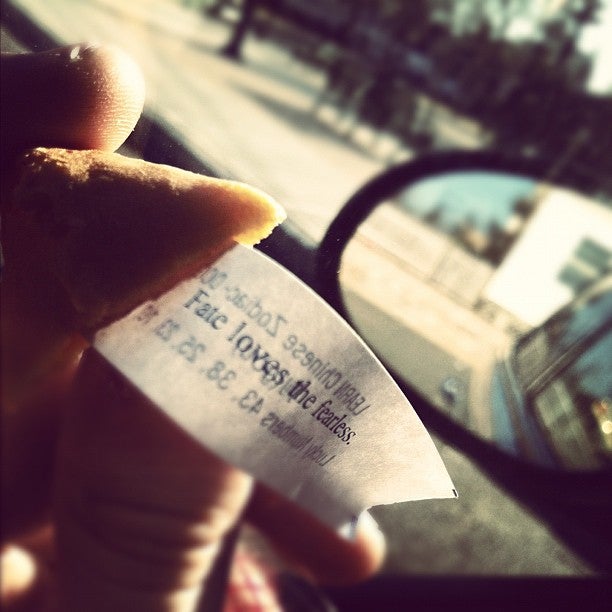 Fate loves the fearless.
LEARN Chinese Zodiac-
Lucky Numbers 43, 38, 25, 23,